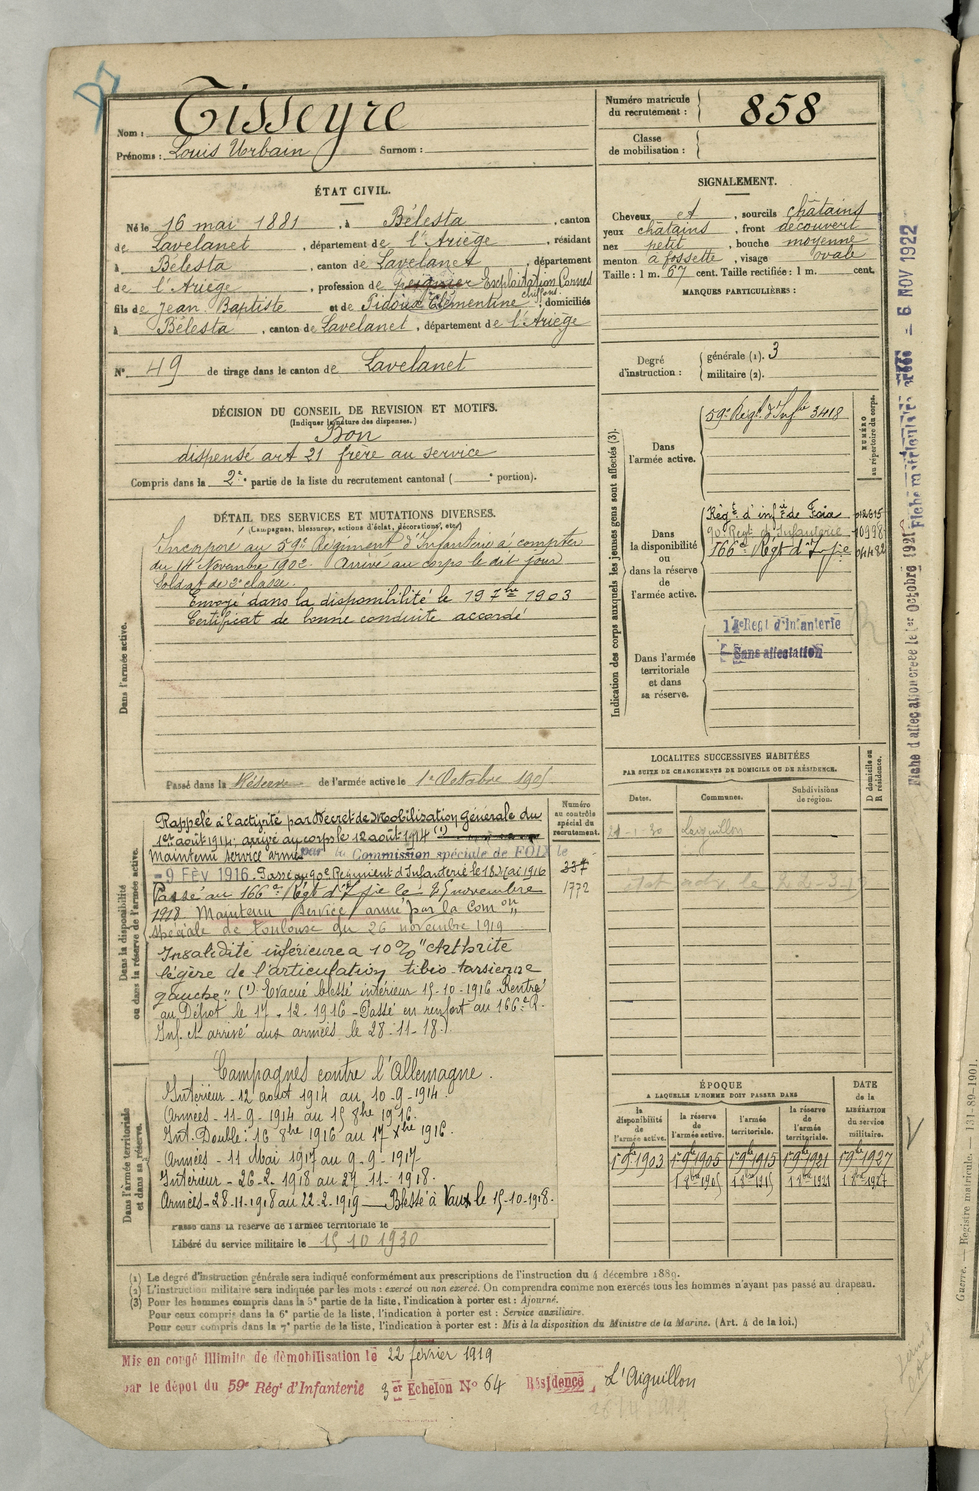 Nom : Tisseyre
Prénoms : Louis Urbain Surnom :
Numéro matricule du recrutement : 858
Classe de mobilisation :
ÉTAT CIVIL.
Né le 16 mai 1881, à Bélesta, canton
de Lavelanet, département de l'Ariège, résidant
à Bélesta, canton de Lavelanet, département
de l'Ariège, profession de peignier Exploitation Cornes chiffons
fils de Jean Baptiste et de Clémentine domiciliés
à Bélesta, canton de Lavelanet, département de l'Ariège
N° 49 de tirage dans le canton de Lavelanet
SIGNALEMENT.
Cheveux et, sourcils châtains
yeux châtains, front découvert
nez petit, bouche moyenne
menton à fossette, visage ovale
Taille : 1 m. 67 cent. Taille rectifiée : 1 m. cent.
MARQUES PARTICULIÈRES :
Degré d'instruction : générale (1). 3
militaire (2).
DÉCISION DU CONSEIL DE REVISION ET MOTIFS.
(Indiquer la nature des dispenses.)
Bon
dispensé art 21 frère au service
Compris dans la 2e partie de la liste du recrutement cantonal ( e portion).
DÉTAIL DES SERVICES ET MUTATIONS DIVERSES.
(Campagnes, blessures, actions d'éclat, décorations, etc.)
Dans l'armée active.
Incorporé au 59e Régiment d'Infanterie à compter
du 14 Novembre 1902. Arrivé au corps le dit jour
Soldat de 2e classe.
Envoyé dans la disponibilité le 19 7bre 1903
Certificat de bonne conduite accordé
Passé dans la Réserve de l'armée active le 1er Octobre 1905
Indication des corps auxquels les jeunes gens sont affectés (3).
NUMÉRO au répertoire du corps.
Dans l'armée active.
59e Régt d'Infie 3418
Dans la disponibilité ou dans la réserve de l'armée active.
Régt d'infie de Foix 012615
90 Régt d'Infanterie 10998
166e Régt d'Infie 04482
Dans l'armée territoriale et dans sa réserve.
14e Régt d'Infanterie
Sans affectation
Fiche d'affectation créée le 1er Octobre 1921
Fiche matriculaire créée - 6 NOV 1922
LOCALITES SUCCESSIVES HABITÉES
PAR SUITE DE CHANGEMENTS DE DOMICILE OU DE RÉSIDENCE.
Dates. Communes. Subdivisions de région. D domicile ou R résidence.
21-1-30 Laiguillon
Dans la disponibilité ou dans la réserve de l'armée active.
Numéro au contrôle spécial du recrutement.
337
1772
Rappelé à l'activité par Décret de Mobilisation Générale du
1er août 1914 ; arrivé au corps le 12 août 1914 (1)
Maintenu service armé par la Commission spéciale de FOIX le
- 9 FÉV 1916. Passé au 90e Régiment d'Infanterie le 18 Mai 1916
Passé au 166e Régt d'Infie le 25 novembre
1918. Maintenu Service armé par la Comon
spéciale de Toulouse du 26 novembre 1919
Invalidité inférieure à 10% "Arthrite
légère de l'articulation tibio tarsienne
gauche". (1) Évacué blessé intérieur 15-10-1916 Rentré
au Dépôt le 17-12-1916 - Passé en renfort au 166e R.
Inf. et arrivé aux armées le 28-11-18.
Dans l'armée territoriale et dans sa réserve.
Campagnes contre l'Allemagne.
Intérieur - 12 août 1914 au 10-9-1914.
Armées - 11-9-1914 au 15 8bre 1916.
Int. Double : 16 8bre 1916 au 17 Xbre 1916.
Armées - 11 Mai 1917 au 9-9-1917
Intérieur - 26-2-1918 au 27-11-1918.
Armées - 28-11-1918 au 22-2-1919 — Blessé à Vaux le 15-10-1918.
Passé dans la réserve de l'armée territoriale le
Libéré du service militaire le 15 10 1930
ÉPOQUE
A LAQUELLE L'HOMME DOIT PASSER DANS
DATE de la LIBÉRATION du service militaire.
la disponibilité de l'armée active. la réserve de l'armée active. l'armée territoriale. la réserve de l'armée territoriale.
1er 9bre 1903 1er 9bre 1905 1er 9bre 1915 1er 9bre 1921 1er 9bre 1927
1 8bre 1905 1 8bre 1915 1 8bre 1921 1 8bre 1927
(1) Le degré d'instruction générale sera indiqué conformément aux prescriptions de l'instruction du 4 décembre 1889.
(2) L'instruction militaire sera indiquée par les mots : exercé ou non exercé. On comprendra comme non exercés tous les hommes n'ayant pas passé au drapeau.
(3) Pour les hommes compris dans la 5e partie de la liste, l'indication à porter est : Ajourné.
Pour ceux compris dans la 6e partie de la liste, l'indication à porter est : Service auxiliaire.
Pour ceux compris dans la 7e partie de la liste, l'indication à porter est : Mis à la disposition du Ministre de la Marine. (Art. 4 de la loi.)
Mis en congé illimité de démobilisation le 22 février 1919
par le dépôt du 59e Régt d'Infanterie 3er Echelon No 64 Résidence L'Aiguillon
Guerre. — Registre matricule. — 131-89-1901.